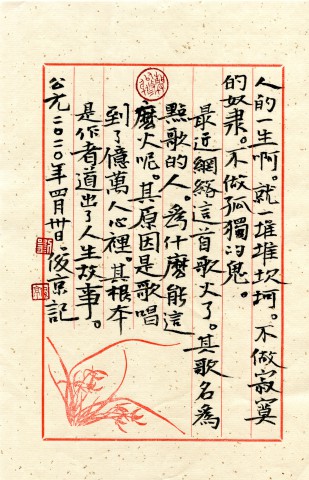 人的一生啊。就一堆堆坎坷。不做寂寞
的奴隶。不做孤獨的鬼。
最近網絡這首歌火了。其歌名為
點歌的人。為什麼能這
麼火呢。其原因是歌唱
到了億萬人心裡。其根本
是作者道出了人生故事。
公元二〇二〇年四月卅日。俊京記